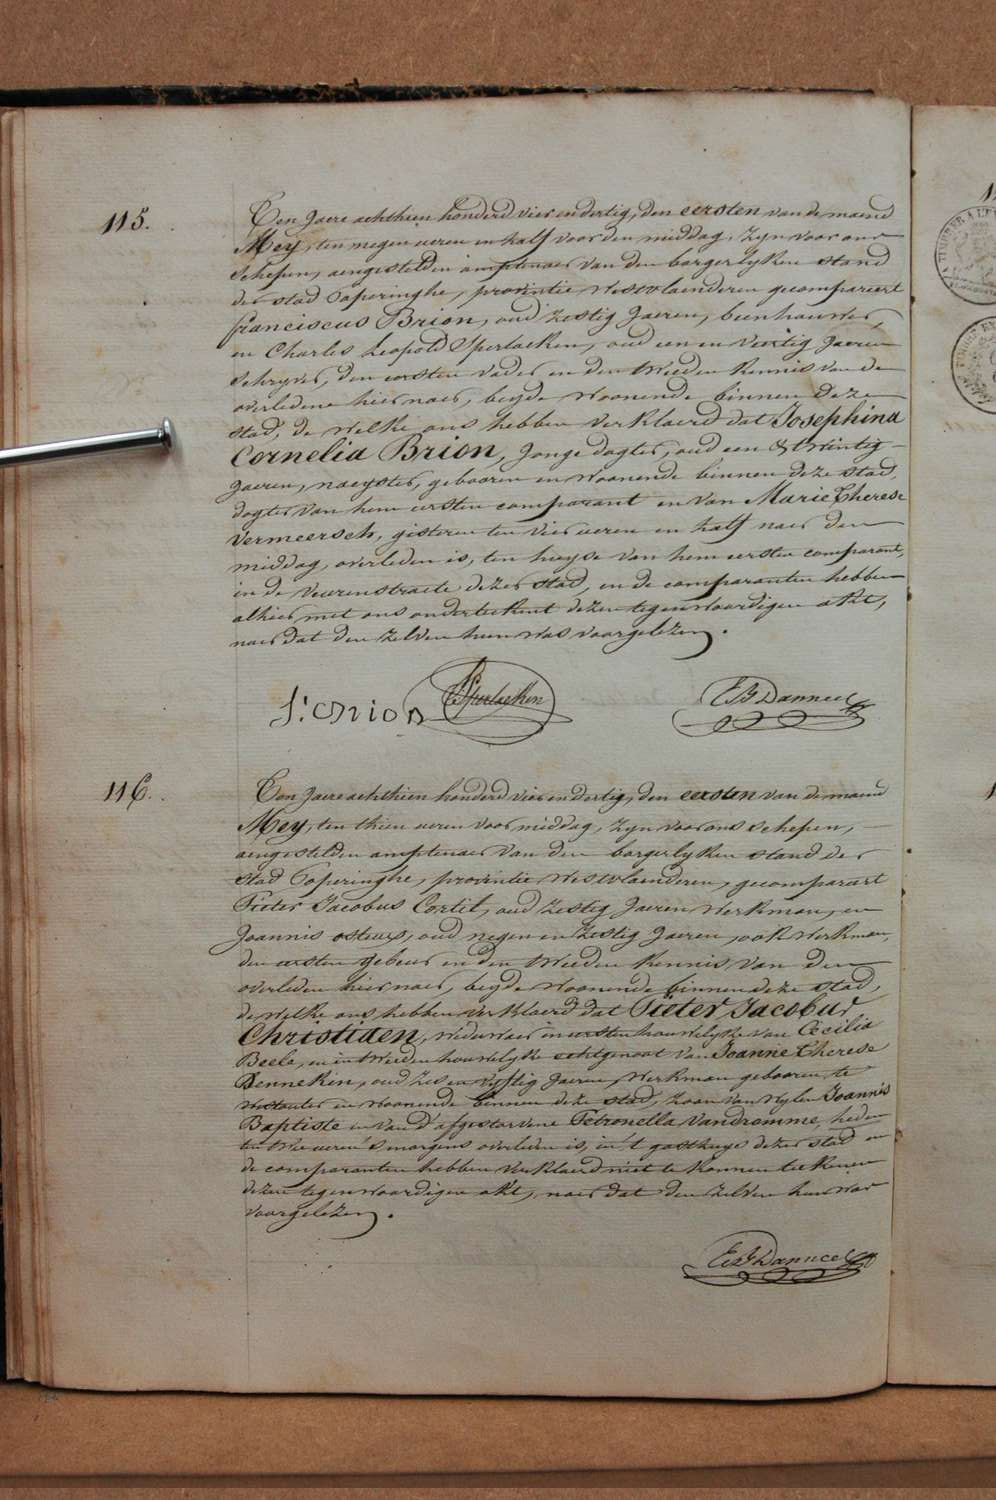 115.
Ten Jaere achthien honderd vier en dertig, den eersten van de maend
Mey, ten negen ueren en half voor den middag, zyn voor ons
schepen, aengestelden amptenaer van den borgerlyken stand
der stad Poperinghe, provintie Westvlaenderen gecompareert
franciscus Brion, oud zestig Jaeren, beenhouwer,
en Charles Leopold Sperlaeken, oud een en veertig Jaeren
schryver, den eersten vader en den tweeden kennis van de
overledene hier naer, beyde woonende binnen deze
stad, de welke ons hebben verklaerd dat Josephina
Cornelia Brion, Jonge dogter, oud een & twintig
Jaeren, naeyster, gebooren en woonende binnen deze stad,
dogter van hem eersten comparant en van Marie Therese
Vermeersch, gisteren ten vier ueren en half naer den
middag, overleden is, ten huyse van hem eersten comparant,
in de veurenstraete dezer stad, en de comparanten hebben
alhier met ons onderteekent dezen tegenwoordigen akt,
naer dat den zelven hun was voorgelezen.
f: brion
Sperlaeken
E B Danneel
116.
Ten Jaere achthien honderd vier en dertig, den eersten van de maend
Mey, ten thien ueren voor middag, zyn voor ons schepen,
aengestelden amptenaer van den borgerlyken stand der
stad Poperinghe, provintie Westvlaenderen, gecomparaert
Pieter Jacobus Cortit, oud zestig Jaeren werkman, en
Joannis osteux, oud negen en zestig Jaeren, ook werkman,
den eersten gebeur en den tweeden kennis van den
overleden hier naer, beyde woonende binnen deze stad,
de welke ons hebben verklaerd dat Pieter Jacobus
Christiaen, weduwaer in eersten houwelyke van Cecilia
Beele, en in tweeden houwelyke echtgenoot van Joanne Therese
Dennekin, oud zes en vyftig Jaeren, werkman gebooren te
en woonende binnen deze stad, zoon van wylen Joannis
Baptiste en van d'afgestorvene Petronella Vandromme, heden
ten twee ueren 's morgens overleden is, in 't gasthuys dezer stad en
de comparanten hebben verklaerd niet te konnen teekenen
dezen tegenwoordigen akt, naer dat den zelven hun was
voorgelezen.
E B Danneel